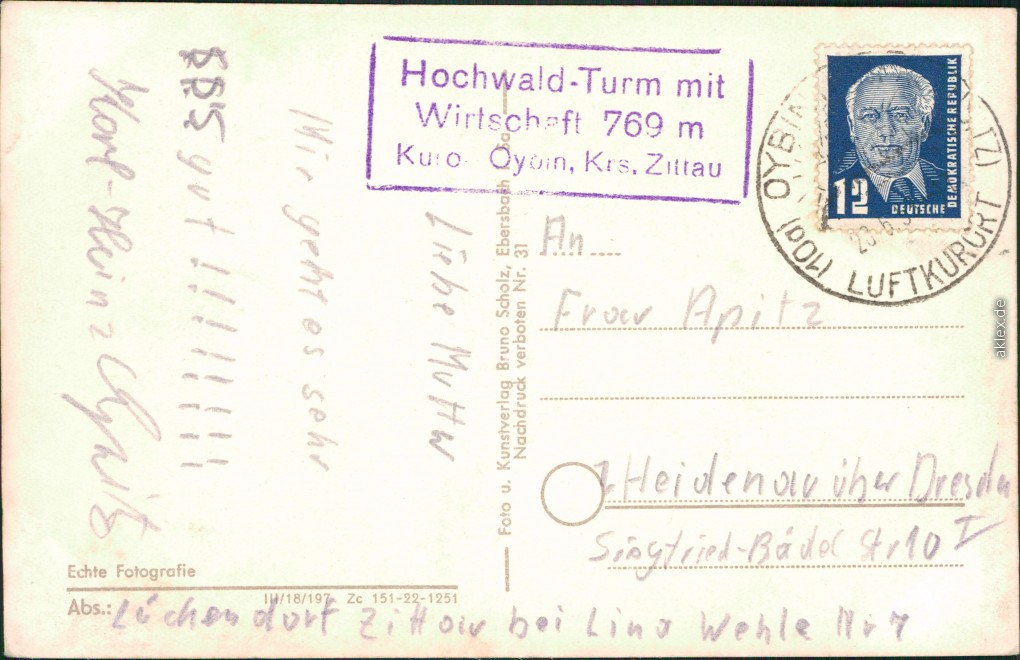 Hochwald-Turm mit
Wirtschaft 769 m
Kurort Oybin, Krs. Zittau
12
DEUTSCHE
DEMOKRATISCHE REPUBLIK
(10a) OYBIN
LUFTKURORT
Liebe Mutter
Mir geht es sehr
gut !!!!!!!!
Karl-Heinz Apitz
Foto u. Kunstverlag Bruno Scholz, Ebersbach
Nachdruck verboten Nr. 31
An
Frau Apitz
Heidenau über Dresden
Siegfried-Rädel Str 10 I
Echte Fotografie
III/18/197 Zc 151-22-1251
Abs.: Lückendorf Zittau bei Lina Wehle Nr 7
aklex.de